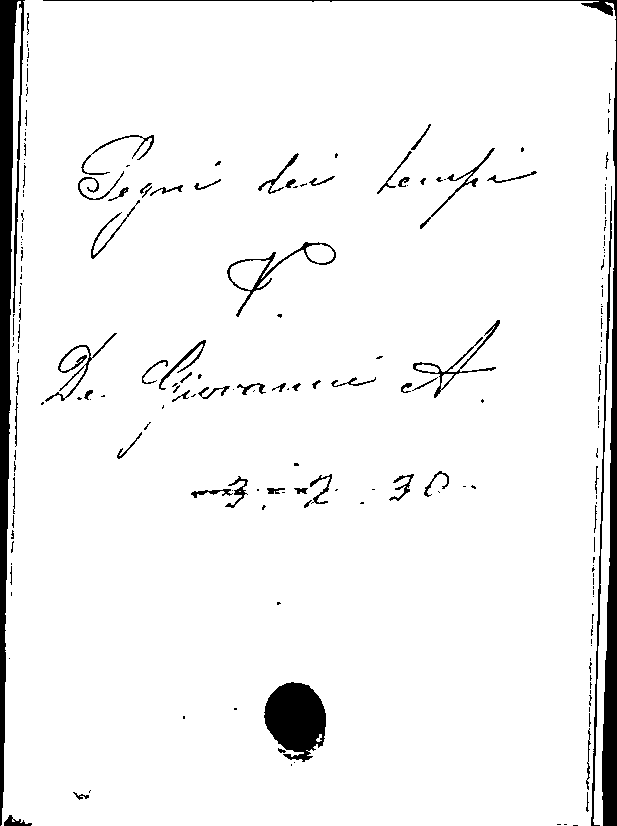 Segni dei tempi
V.
De Giovanni A.
3. 2. 30